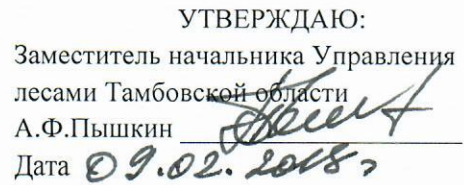 УТВЕРЖДАЮ:
Заместитель начальника Управления
лесами Тамбовской области
А.Ф.Пышкин
Дата 09.02.2018г